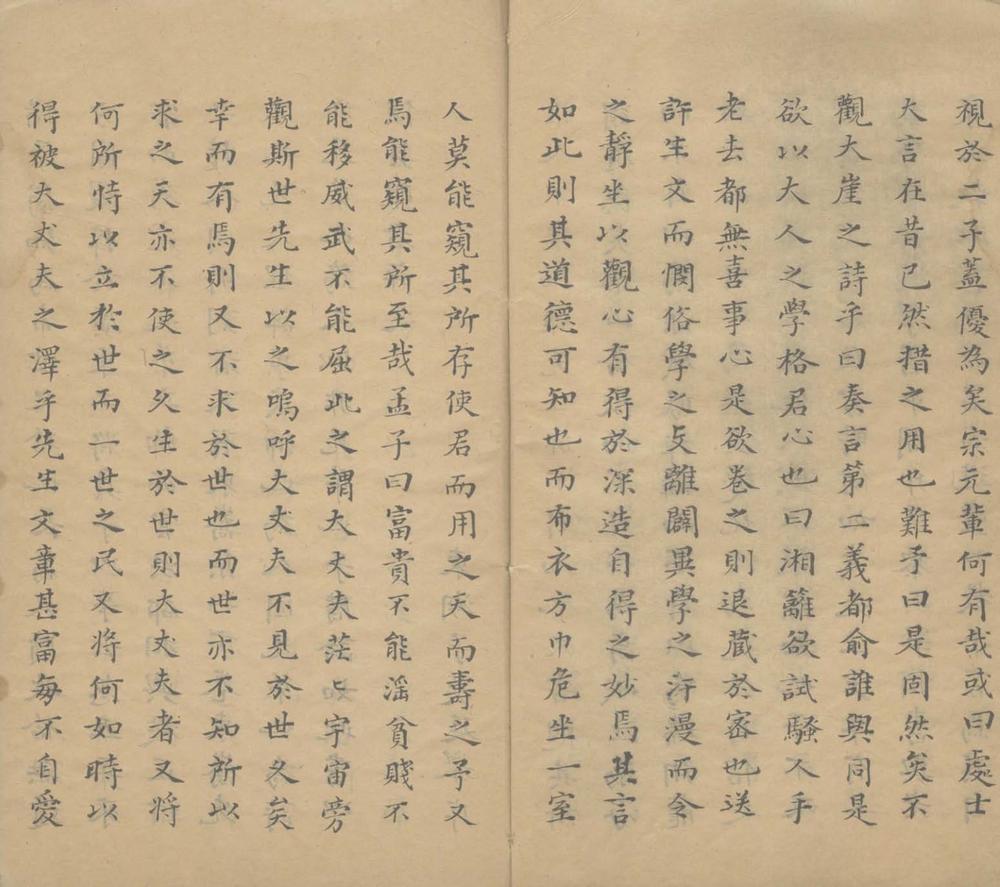 視於二子蓋優為矣宗元輩何有哉或曰處士
大言在昔已然措之用也難予曰是固然矣不
觀大崖之詩乎曰奏言第二義都俞誰與同是
欲以大人之學格君心也曰湘籬欲試騷人手
老去都無喜事心是欲卷之則退藏於宻也送
許生文而憫俗學之支離闢異學之汗漫而令
之靜坐以觀心有得於深造自得之妙焉其言
如此則其道德可知也而布衣方巾危坐一室
人莫能窺其所存使君而用之天而壽之予又
焉能窺其所至哉孟子曰富貴不能滛貧賤不
能移威武不能屈此之謂大丈夫茫〻宇宙旁
觀斯世先生以之嗚呼大丈夫不見於世久矣
幸而有焉則又不求於世也而世亦不知所以
求之天亦不使之久生於世則大丈夫者又將
何所恃以立於世而一世之民又将何如時以
得被大丈夫之澤乎先生文章甚富每不自愛